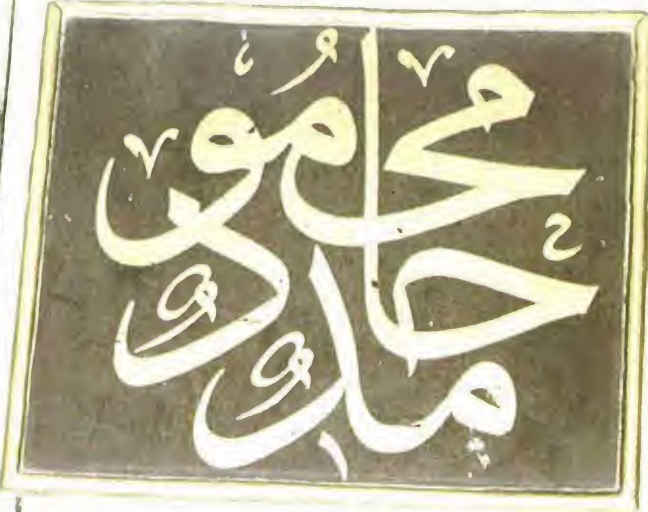 محمُودٌ
حامِدٌ